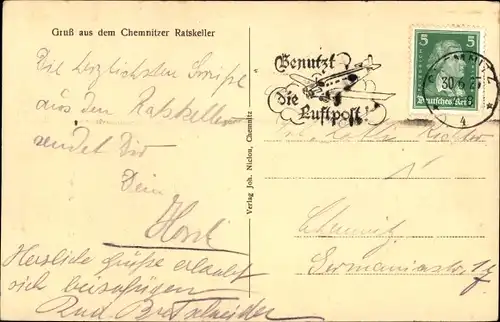 Gruß aus dem Chemnitzer Ratskeller
Die herzlichsten Grüße
aus dem Ratskeller
sendet Dir
Dein
Horst
Herzliche Grüße erlaubt
sich beizufügen
Rud Bretschneider
Verlag Joh. Nichou, Chemnitz
Benutzt
die
Luftpost!
5 5
Deutsches Reich
CHEMNITZ
30.6.27
4
Richter
Chemnitz
Germaniastr. 17